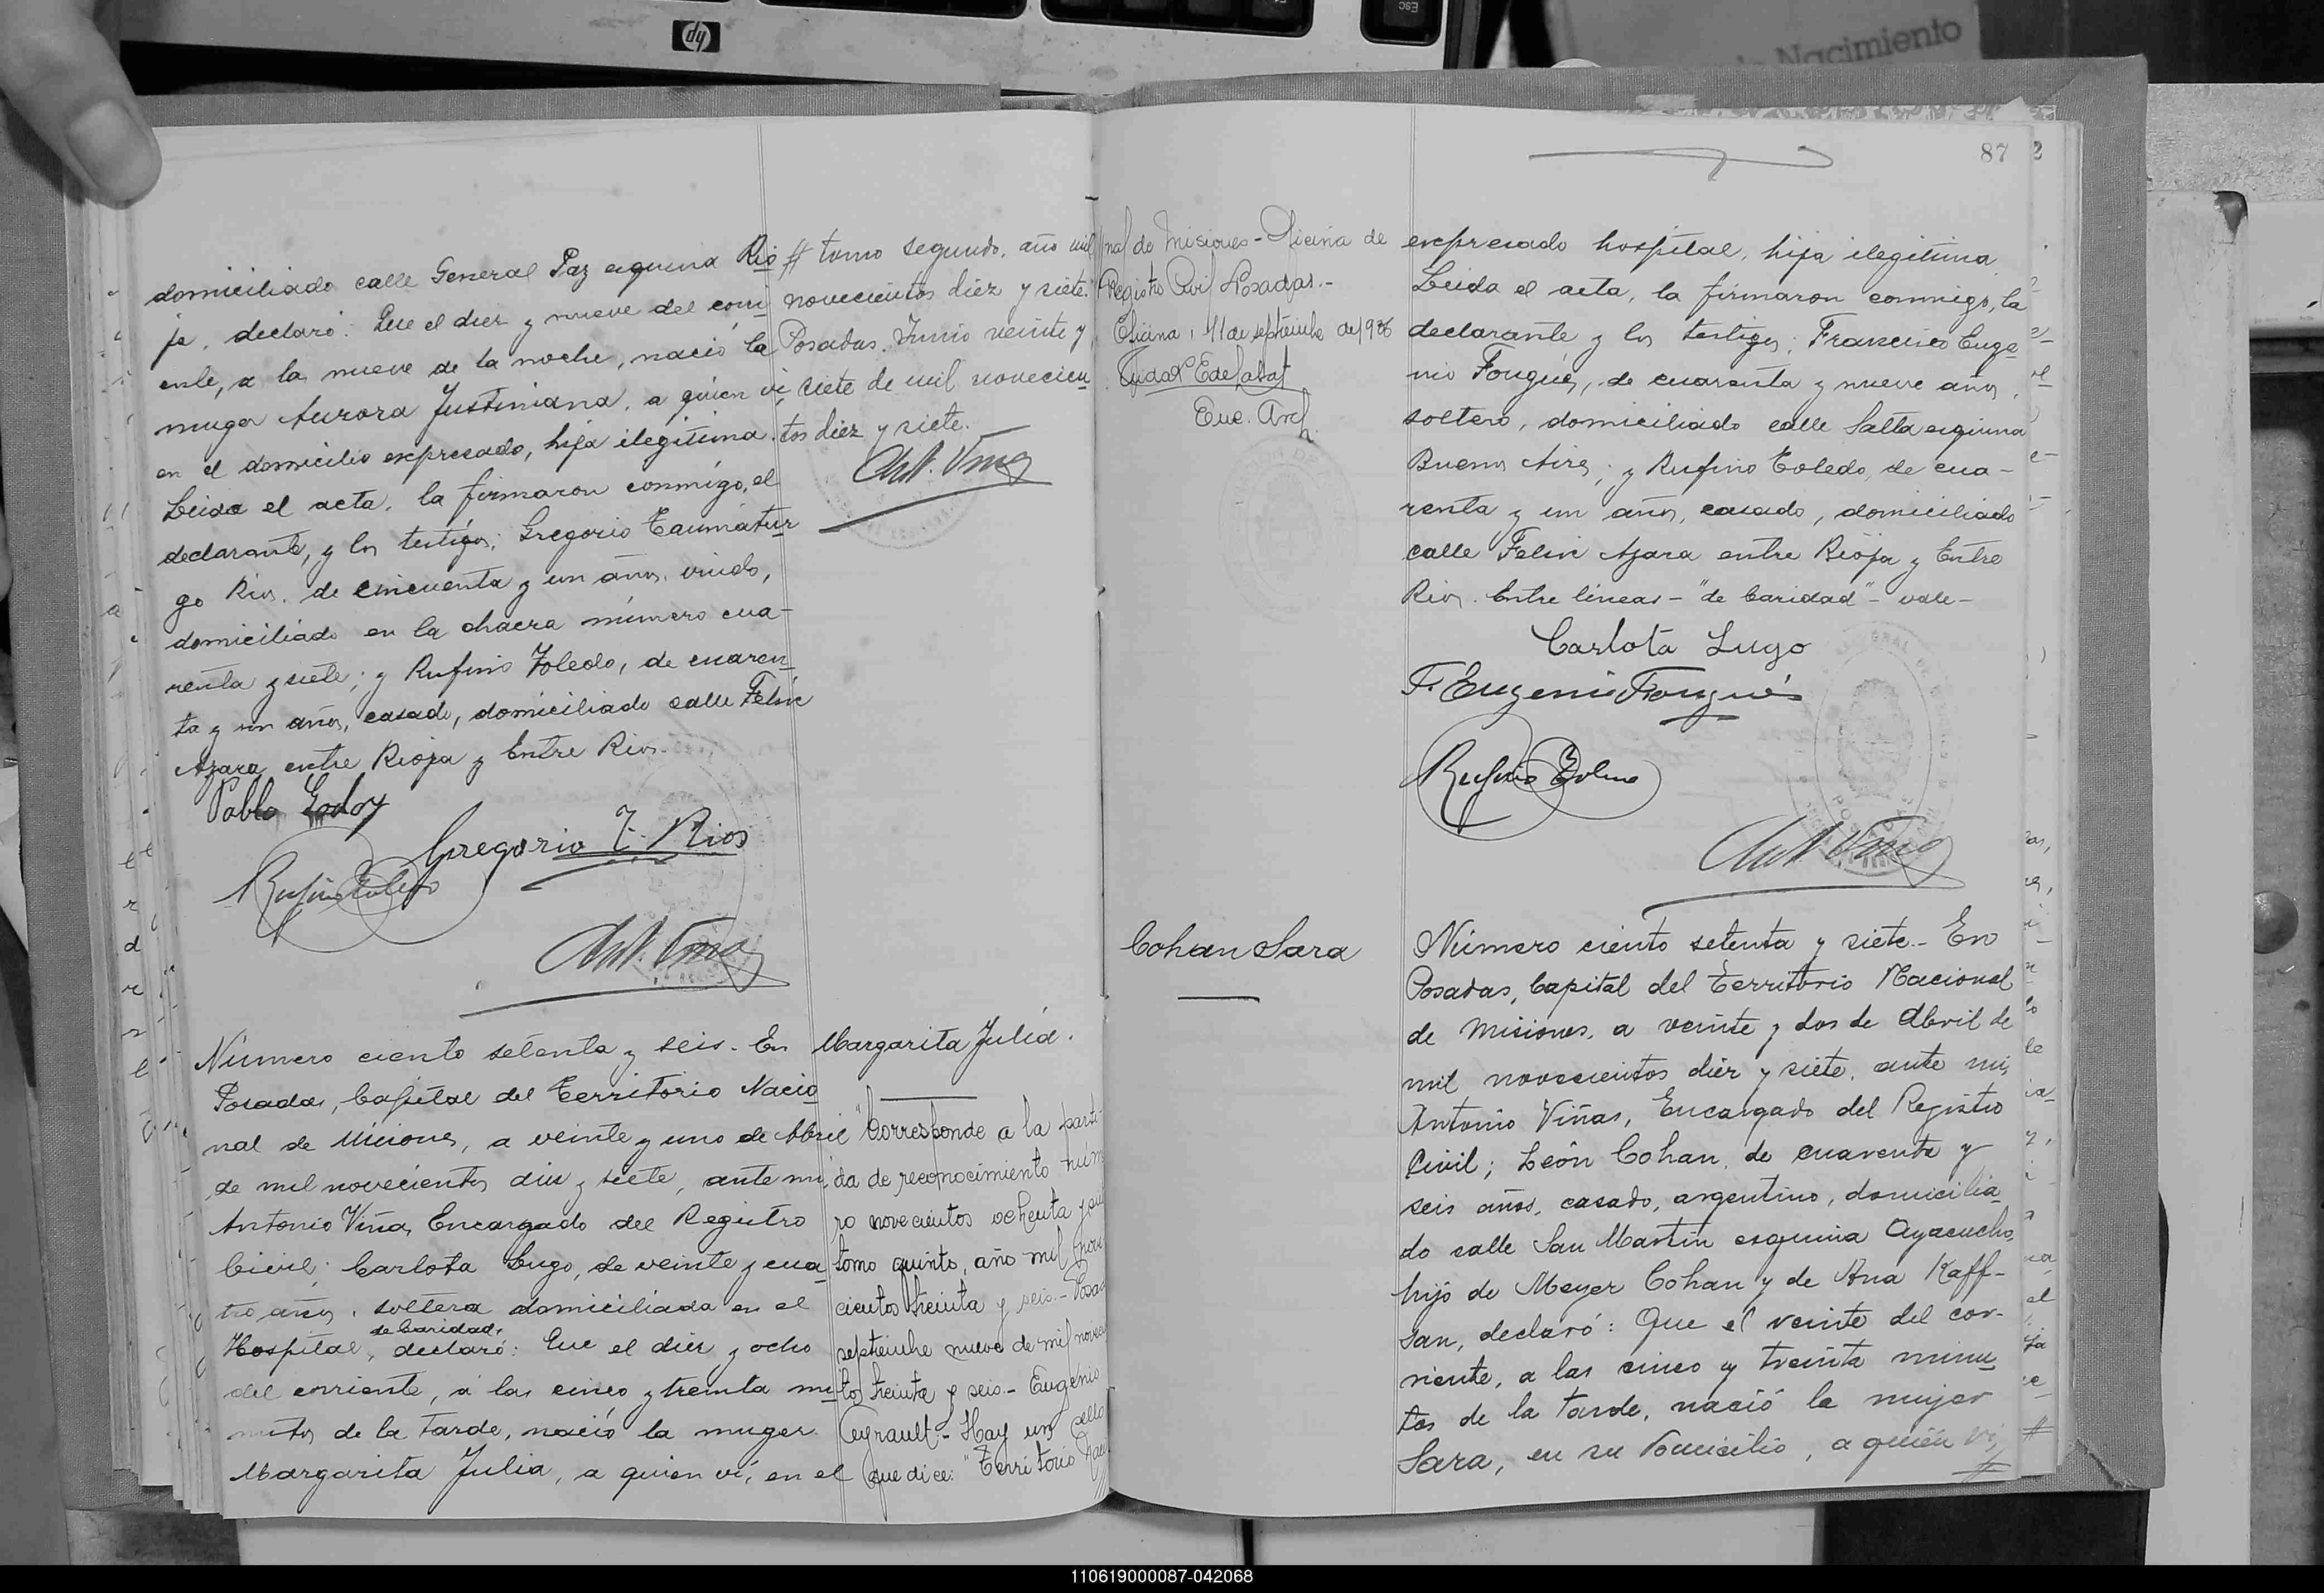 domiciliado calle General Paz esquina Rio
ja, declaró: Que el diez y nueve del corri
ente, a las nueve de la noche, nació la
muger Aurora Justiniana, a quien vi,
en el domicilio expresado, hija ilegitima.
Leida el acta, la firmaron conmigo, el
declarante, y los testigos; Gregorio Taumatur
go Rios, de cincuenta y un años, viudo,
domiciliado en la chacra número cua-
renta y siete; y Rufino Toledo, de cuaren
ta y un años, casado, domiciliado calle Felix
Azara entre Rioja y Entre Rios.
Pablo Godoy
Gregorio T. Rios
Rufino Toledo
# tomo segundo, año mil
novecientos diez y siete.
Posadas. Junio veinte y
siete de mil novecien
tos diez y siete.
Número ciento setenta y seis. En
Posadas, Capital del Territorio Nacio
nal de Misiones, a veinte y uno de Abril
de mil novecientos diez y siete, ante mi,
Antonio Viñas, Encargado del Registro
Civil; Carlota Lugo, de veinte y cua
tro años, soltera domiciliada en el
de Caridad,
Hospital, declaró: Que el diez y ocho
del corriente, a las cinco y treinta mi
nutos de la tarde, nació la muger
Margarita Julia, a quien vi, en el
Margarita Julia.
"Corresponde a la parti
da de reconocimiento núm
ro novecientos ochenta y
tomo quinto, año mil nove
cientos treinta y seis.- Posad
septiembre nueve de mil novecien
tos treinta y seis.- Eugenio
Ceyrault.- Hay un sello
que dice: "Territorio Nacio
nal de Misiones - Oficina de
Registro Civil Posadas.-
Oficina, 11 de septiembre de 1936
Enc. Arch.
87
expresado hospital, hija ilegitima.
Leida el acta, la firmaron conmigo, la
declarante y los testigos; Francisco Euge
nio Fougués, de cuarenta y nueve años,
soltero, domiciliado calle Salta esquina
Buenos Aires; y Rufino Toledo, de cua-
renta y un años, casado, domiciliado
calle Felix Azara entre Rioja y Entre
Rios. Entre lineas - "de Caridad" - vale -
Carlota Lugo
F. Eugenio Fougués
Rufino Toledo
Cohan Sara
Número ciento setenta y siete.- En
Posadas, Capital del Territorio Nacional
de Misiones, a veinte y dos de Abril de
mil novecientos diez y siete, ante mi,
Antonio Viñas, Encargado del Registro
Civil; León Cohan, de cuarenta y
seis años, casado, argentino, domicilia
do calle San Martin esquina Ayacucho,
hijo de Meyer Cohan y de Ana Kaff-
san, declaró: Que el veinte del cor-
riente, a las cinco y treinta minu
tos de la tarde, nació la mujer
Sara, en su domicilio, a quién vi,
hp
ESC
Nacimiento
110619000087-042068